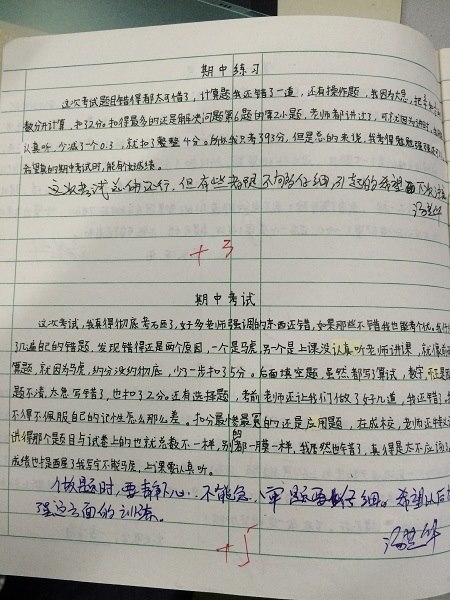 期中练习
这次考试题目错得都太可惜了，计算题我还错了一道，还有操作题，我因为大意，把
数分开计算，扣了2分。扣得最多的还是解决问题第6题的第2小题，老师都讲过了，可
认真听，少减了一个0.3，就扣了整整4分。所以我只考了93分，但是总的来说，我考得
希望真的期中考试时，能有好成绩。
这次考试总体还行，但有些
+3
期中考试
这次考试，我真得彻底考石西了，好多老师强调的东西还错，如果那些不错我也能考个优，
了几遍自己的错题，发现错得还是两个原因，一个是马虎，另一个是上课没认真听老师讲课，就像
算题，就因为马虎，约分没约彻底，少了一步扣了0.5分。后面填空题，虽然都写了算试，数字
题不清，大意写错了，也扣了2分。还有选择题，考前老师还让我们做了好几道，我还错了，
不得不佩服自己的记性怎么那么差。扣分最惨最冤的还是应用题，在成校，老师
讲得那个题目与试卷上的也就总数不一样，别的都一模一样，我居然也错了，真得是太不应该
成绩也是西羅了我写字不能马虎，上课要认真听。
做题时，要静下心，不能急，审题要仔细。希望以后
强这方面的训练。
+5